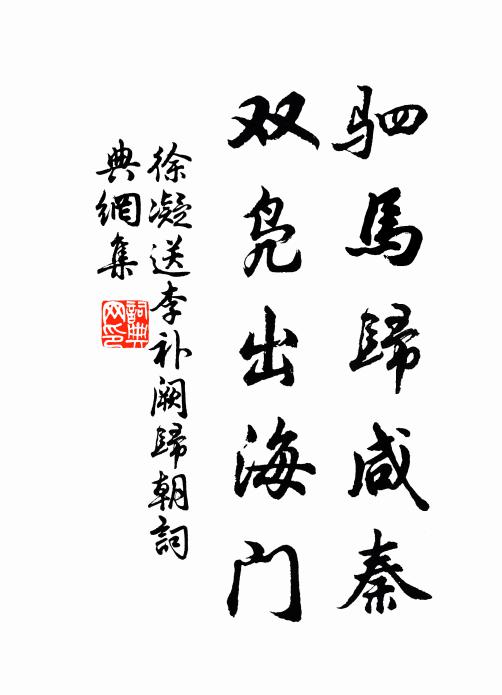 驷馬歸咸秦
双凫出海门
徐凝送李补阙歸朝詞
典網集
詞典
网印